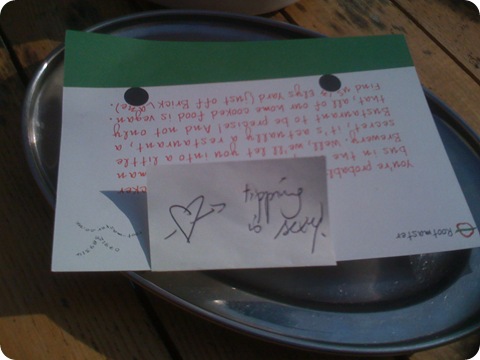 Rootmaster
bus in the
Brewery. Well, we'll let you into a little
secret, it's actually a restaurant, a
Bustaurant to be precise! And not only
that, all of our home cooked food is vegan.
Find us in Elys Yard (just off Brick Lane).
tipping
is sexy!